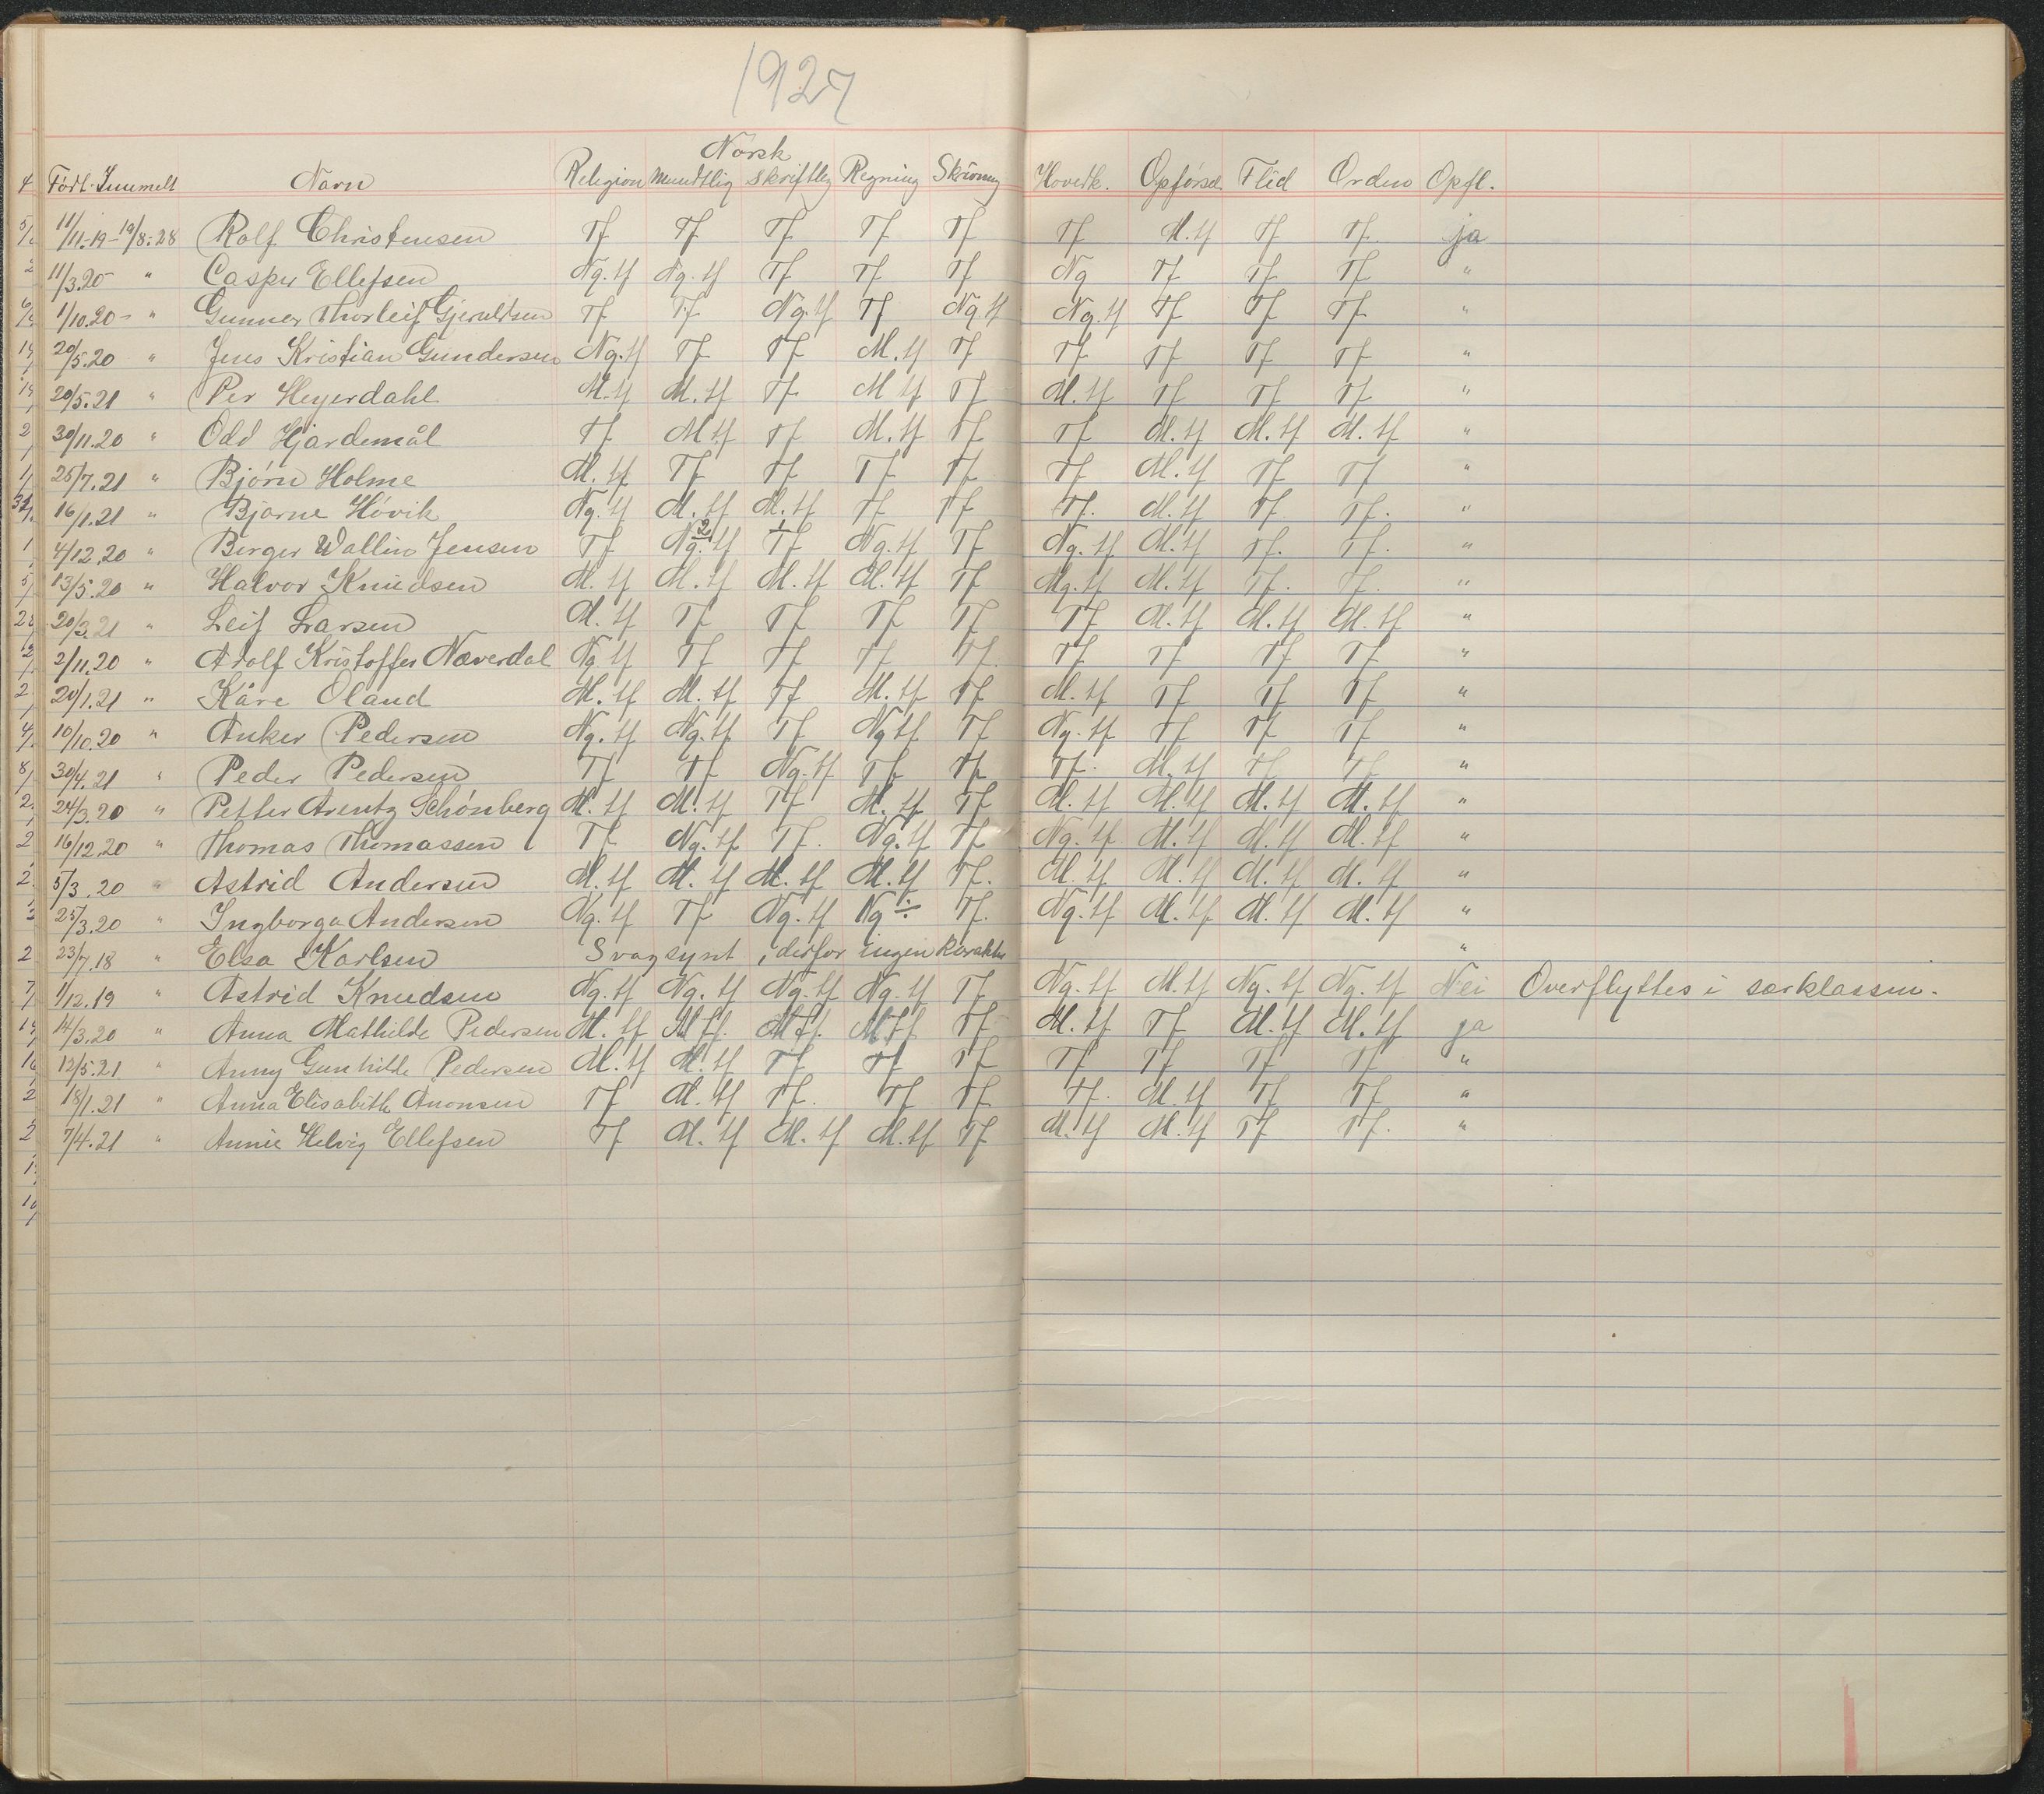 1927
Norsk
Født. Innmelt Navn Religion Mundtlig Skriftlig Regning Skrivning Hovedk. Opførsel Flid Orden Opfl.
11/11.-19 - 19/8.-28 Rolf Christensen Tf Tf Tf Tf Tf Tf M.tf Tf Tf. ja
11/3.20 - " Casper Ellefsen Ng.tf Ng.tf Tf Tf Tf Ng Tf Tf Tf "
1/10.20 - " Gunner Thorleif Gjeruldsen Tf Tf Ng.tf Tf Ng tf Ng.tf Tf Tf Tf "
20/5.20 " Jens Kristian Gundersen Ng.tf Tf Tf M.tf Tf Tf Tf Tf Tf "
20/5.21 " Per Heyerdahl M.tf M.tf Tf M tf Tf M.tf Tf Tf Tf "
30/11.20 " Odd Hjardemål Tf M tf Tf M.tf Tf Tf M.tf M.tf M.tf "
25/7.21 " Bjørn Holme M.tf Tf Tf Tf Tf Tf M.tf Tf Tf "
16/1.21 " Bjarne Høvik Ng.tf M.tf M.tf Tf Tf Tf. M.tf Tf Tf. "
4/12.20 " Berger Wallin Jensen Tf Ng.tf Tf Ng.tf Tf Ng.tf M.tf Tf. Tf. "
13/5.20 " Halvor Knudsen M.tf M.tf M.tf M.tf Tf Mg.tf M.tf Tf. Tf. "
20/3.21 " Leif Larsen M.tf Tf Tf Tf Tf Tf M.tf M.tf M.tf "
2/11.20 " Adolf Kristoffer Næverdal Ng.tf Tf Tf Tf Tf. Tf Tf Tf Tf "
20/1.21 " Kåre Øland M.tf M.tf Tf M.tf Tf M.tf Tf Tf Tf "
10/10.20 " Anker Pedersen Ng.tf Ng.tf Tf Ng tf Tf Ng.tf Tf Tf Tf "
30/4.21 " Peder Pedersen Tf Tf Ng.tf Tf Tf Tf. M.tf Tf Tf "
24/3.20 " Petter Arentz Schønberg M.tf M.tf Tf M.tf Tf M.tf M.tf M.tf M.tf "
16/12.20 " Thomas Thomassen Tf Ng.tf Tf. Ng.tf Tf Ng.tf M.tf M.tf M.tf "
5/3.20 " Astrid Andersen M.tf M.tf M.tf M.tf Tf. M.tf M.tf M.tf M.tf "
25/3.20 " Ingborga Andersen Ng.tf Tf Ng.tf Ng ÷ Tf. Ng.tf M.tf M.tf M.tf "
23/7.18 " Elsa Karlsen Svagsynt, derfor ingen karakter "
1/12.19 " Astrid Knudsen Ng.tf Ng.tf Ng.tf Ng.tf Tf Ng.tf M.tf Ng.tf Ng.tf Nei Overflyttes i særklassen.
14/3.20 " Anna Mathilde Pedersen M.tf M.Tf. M Tf. M.Tf Tf M.tf Tf M.tf M.tf ja
12/5.21 " Anny Gunhilde Pedersen M.tf M.tf Tf Tf Tf Tf Tf Tf Tf "
18/1.21 " Anna Elisabith Anonsen Tf M.tf Tf. Tf Tf Tf. M.tf Tf Tf "
7/4.21 " Annie Helvig Ellefsen Tf M.tf M.tf M.tf Tf M.tf M.tf Tf Tf. "